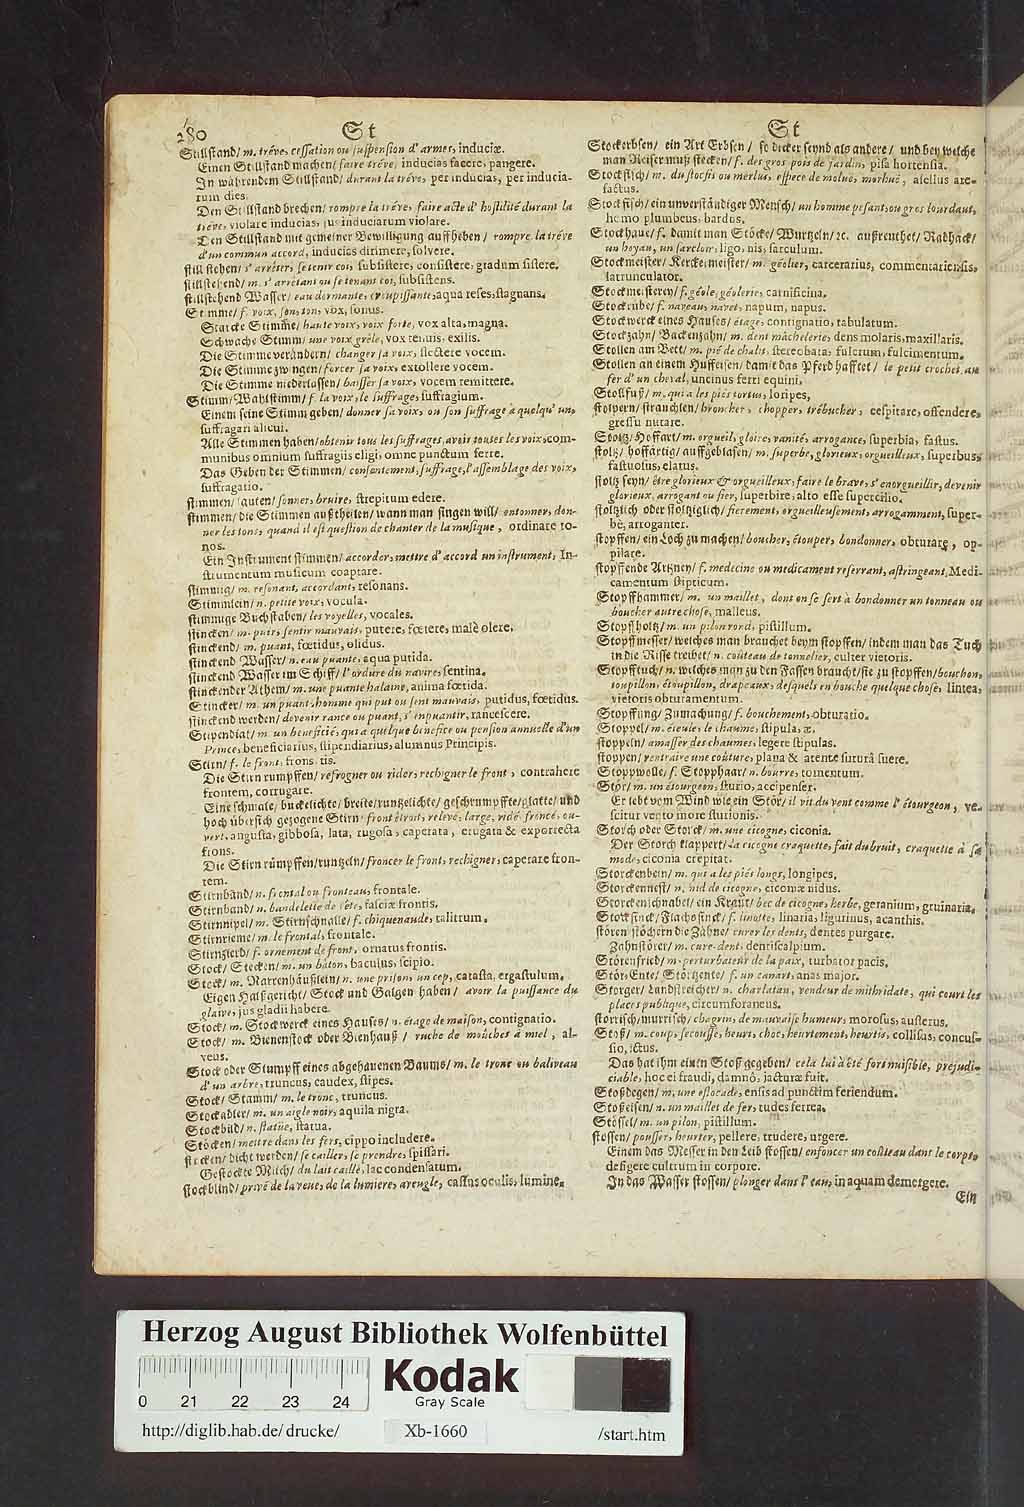 280
St
Stillstand/ m. tréve, cessation ou suspension d'armes, induciæ.
Einen Stillstand machen/ faire tréve, inducias facere, pangere.
In währendem Stillstand/ durant la tréve, per inducias, per inducia-
rum dies.
Den Stillstand brechen/ rompre la tréve, faire acte d'hostilité durant la
tréve, violare inducias, jus induciarum violare.
Den Stillstand mit gemeiner Bewilligung auffheben/ rompre la tréve
d'un commun accord, inducias dirimere, solvere.
still stehen/ s'arrêter, se tenir coi, subsistere, consistere, gradum sistere.
stillstehend/ m. s'arrêtant ou se tenant coi, subsistens.
stillstehend Wasser/ eau dormante, croupissante, aqua reses, stagnans.
Stimme/ f. voix, son, ton, vox, sonus.
Starcke Stimme/ haute voix, voix forte, vox alta, magna.
Schwache Stimm/ une voix grêle, vox tenuis, exilis.
Die Stimme verändern/ changer sa voix, flectere vocem.
Die Stimme zwingen/ forcer sa voix, extollere vocem.
Die Stimme niederlassen/ baisser sa voix, vocem remittere.
Stimm/ Wahlstimm/ f. la voix, le suffrage, suffragium.
Einem seine Stimm geben/ donner sa voix, ou son suffrage à quelqu'un,
suffragari alicui.
Alle Stimmen haben/ obtenir tous les suffrages, avoir toutes les voix, com-
munibus omnium suffragiis eligi, omne punctum ferre.
Das Geben der Stimmen/ consentement, suffrage, l'assemblage des voix,
suffragatio.
stimmen/ lauten/ sonner, bruire, strepitum edere.
stimmen/ die Stimmen außtheilen/ wann man singen will/ entonner, don-
ner les tons, quand il est question de chanter de la musique, ordinare to-
nos.
Ein Instrument stimmen/ accorder, mettre d'accord un instrument, In-
strumentum musicum coaptare.
stimmig/ m. resonant, accordant, resonans.
Stimmlein/ n. petite voix, vocula.
stimmige Buchstaben/ les voyelles, vocales.
stincken/ m. puir, sentir mauvais, putere, fœtere, malè olere.
stinckend/ m. puant, fœtidus, olidus.
stinckend Wasser/ n. eau puante, aqua putida.
stinckend Wasser im Schiff/ l'ordure du navire, sentina.
stinckender Athem/ m. une puante halaine, anima fœtida.
Stincker/ m. un puant, homme qui put ou sent mauvais, putidus, fœtidus.
stinckend werden/ devenir rance ou puant, s'inpuantir, rancescere.
Stipendiat/ m. un beneficié, qui a quelque benefice ou pension annuelle d'un
Prince, beneficiarius, stipendiarius, alumnus Principis.
Stirn/ f. le front, frons, tis.
Die Stirn rumpffen/ refrogner ou rider, rechigner le front, contrahere
frontem, corrugare.
Eine schmale/ buckelichte/ breite/ runtzelichte/ geschrumpffte/ glatte/ und
hoch übersich gezogene Stirn/ front étroit, relevé, large, ridé, froncé, ou-
vert, angusta, gibbosa, lata, rugosa, caperata, erugata & exporrecta
frons.
Die Stirn rümpffen/ runtzeln/ froncer le front, rechigner, caperare fron-
tem.
Stirnbänd/ n. frontal ou fronteau, frontale.
Stirnband/ n. bandelette de tête, fasciæ frontis.
Stirnnipel/ m. Stirnschnalle/ f. chiquenaude, talitrum.
Stirnrieme/ m. le frontal, frontale.
Stirnzierd/ f. ornement de front, ornatus frontis.
Stock/ Stecken/ m. un bâton, baculus, scipio.
Stock/ m. Narrenhäußlein/ n. une prison, un cep, catasta, ergastulum.
Eigen Halßgericht/ Stock und Galgen haben/ avoir la puissance du
glaive, jus gladii habere.
Stock/ m. Stockwerck eines Hauses/ n. étage de maison, contignatio.
Stock/ m. Bienenstock oder Bienhauß/ ruche de moûches à miel, al-
veus.
Stock oder Stumpff eines abgehauenen Baums/ m. le tronc ou baliveau
d'un arbre, truncus, caudex, stipes.
Stock/ Stamm/ m. le tronc, truncus.
Stockadler/ m. un aigle noir, aquila nigra.
Stockbild/ n. statuë, statua.
Stöcken/ mettre dans les fers, cippo includere.
stocken/ dicht werden/ se cailler, se prendre, spissari.
Gestockte Milch/ du lait caillé, lac condensatum.
stockblind/ privé de la veue, de la lumiere, aveugle, cassus oculis, lumine.
St
Stockerbsen/ ein Art Erbsen/ so dicker seynd als andere/ und bey welche
man Reiser muß stecken/ f. des gros pois de jardin, pisa hortensia.
Stockfisch/ m. du stocfis ou merlus, espece de moluë, morhuë, asellus are-
factus.
Stockfisch/ ein unverständiger Mensch/ un homme pesant, ou gros lourdaut,
homo plumbeus, bardus.
Stockhaue/ f. damit man Stöcke/ Wurtzeln/ ꝛc. außreuthet/ Radhack/
un hoyau, un sarcloir, ligo, nis, sarculum.
Stockmeister/ Kerckermeister/ m. géolier, carcerarius, commentariensis,
latrunculator.
Stockmeisterey/ f. géole, géolerie, carnificina.
Stockrube/ f. naveau, navet, napum, napus.
Stockwerck eines Hauses/ étage, contignatio, tabulatum.
Stockzahn/ Backenzahn/ m. dent mâcheliere, dens molaris, maxillaris.
Stollen am Bett/ m. pié de chalit, stereobata, fulcrum, fulcimentum.
Stollen an einem Huffeisen/ damit das Pferd hafftet/ le petit crochet au
fer d'un cheval, uncinus ferri equini,
Stollfuß/ m. qui a les piés tortus, loripes,
stolpern/ strauchlen/ broncher, chopper, trébucher, cespitare, offendere,
gressu nutare.
Stoltz/ Hoffart/ m. orgueil, gloire, vanité, arrogance, superbia, fastus.
stoltz/ hoffärtig/ auffgeblasen/ m. superbe, glorieux, orgueilleux, superbus,
fastuosus, elatus.
stoltz seyn/ être glorieux & orgueilleux, faire le brave, s'enorgueillir, devenir
glorieux, arrogant ou fier, superbire, alto esse supercilio.
stoltzlich oder stoltziglich/ fierement, orgueilleusement, arrogamment, super-
bè, arroganter.
stopffen/ ein Loch zu machen/ boucher, étouper, bondonner, obturare, op-
pilare.
stopffende Artzney/ f. medecine ou medicament reserrant, astringeant, Medi-
camentum stipticum.
Stopffhammer/ m. un maillet, dont on se sert à bondonner un tonneau ou
boucher autre chose, malleus.
Stopffholtz/ m. un pilon rond, pistillum.
Stopffmesser/ welches man brauchet beym stopffen/ indem man das Tuch
in die Risse treibet/ n. coûteau de tonnelier, culter vietoris.
Stopfftuch/ n. welches man zu den Fassen braucht/ sie zu stopffen/ bouchon,
toupillon, étoupillon, drapeaux, desquels en bouche quelque chose, lintea,
vietoris obturamentum.
Stopffung/ Zumachung/ f. bouchement, obturatio.
Stoppel/ m. éteule, le chaume, stipula, æ.
stoppeln/ amasser des chaumes, legere stipulas.
stoppen/ rentraire une coûture, plana & latente suturâ suere.
Stoppwolle/ f. Stopphaar/ n. bourre, tomentum.
Stör/ m. un étourgeon, sturio, accipenser.
Er lebt vom Wind wie ein Stör/ il vit du vent comme l'étourgeon, ve-
scitur vento more sturionis.
Storch oder Storck/ m. une cicogne, ciconia.
Der Storch klappert/ la cicogne craquette, fait du bruit, craquette à sa
mode, ciconia crepitat.
Storckenbein/ m. qui a les piés longs, longipes.
Storckennest/ n. nid de cicogne, ciconiæ nidus.
Storckenschnabel/ ein Kraut/ bec de cicogne, herbe, geranium, gruinaria.
Storckfinck/ Flachsfinck/ f. linotte, linaria, ligurinus, acanthis.
stören/ stöchern die Zähne/ curer les dents, dentes purgare.
Zahnstörer/ m. cure-dent, dentiscalpium.
Störenfried/ m. perturbateur de la paix, turbator pacis.
Stör-Ente/ Störtzente/ f. un canart, anas major.
Storger/ Landstreicher/ n. charlatan, vendeur de mithridate, qui court les
places publique, circumforaneus.
störrisch/ murrisch/ chagrin, de mauvaise humeur, morosus, austerus.
Stoß/ m. coup, secousse, heurt, choc, heurtement, heurtis, collisus, concus-
sio, ictus.
Das hat ihm einen Stoß gegeben/ cela lui à été fort nuisible, préjudi-
ciable, hoc ei fraudi, damnô, jacturæ fuit.
Stoßdegen/ m. une estocade, ensis ad punctim feriendum.
Stoßeisen/ n. un maillet de fer, tudes ferrea.
Stössel/ m. un pilon, pistillum.
stossen/ pousser, heurter, pellere, trudere, urgere.
Einem das Messer in den Leib stossen/ enfoncer un coûteau dans le corps,
defigere cultrum in corpore.
In das Wasser stossen/ plonger dans l'eau, in aquam demergere.
Ein
Herzog August Bibliothek Wolfenbüttel
0 21 22 23 24
Kodak
Gray Scale
http://diglib.hab.de/drucke/ Xb-1660 /start.htm